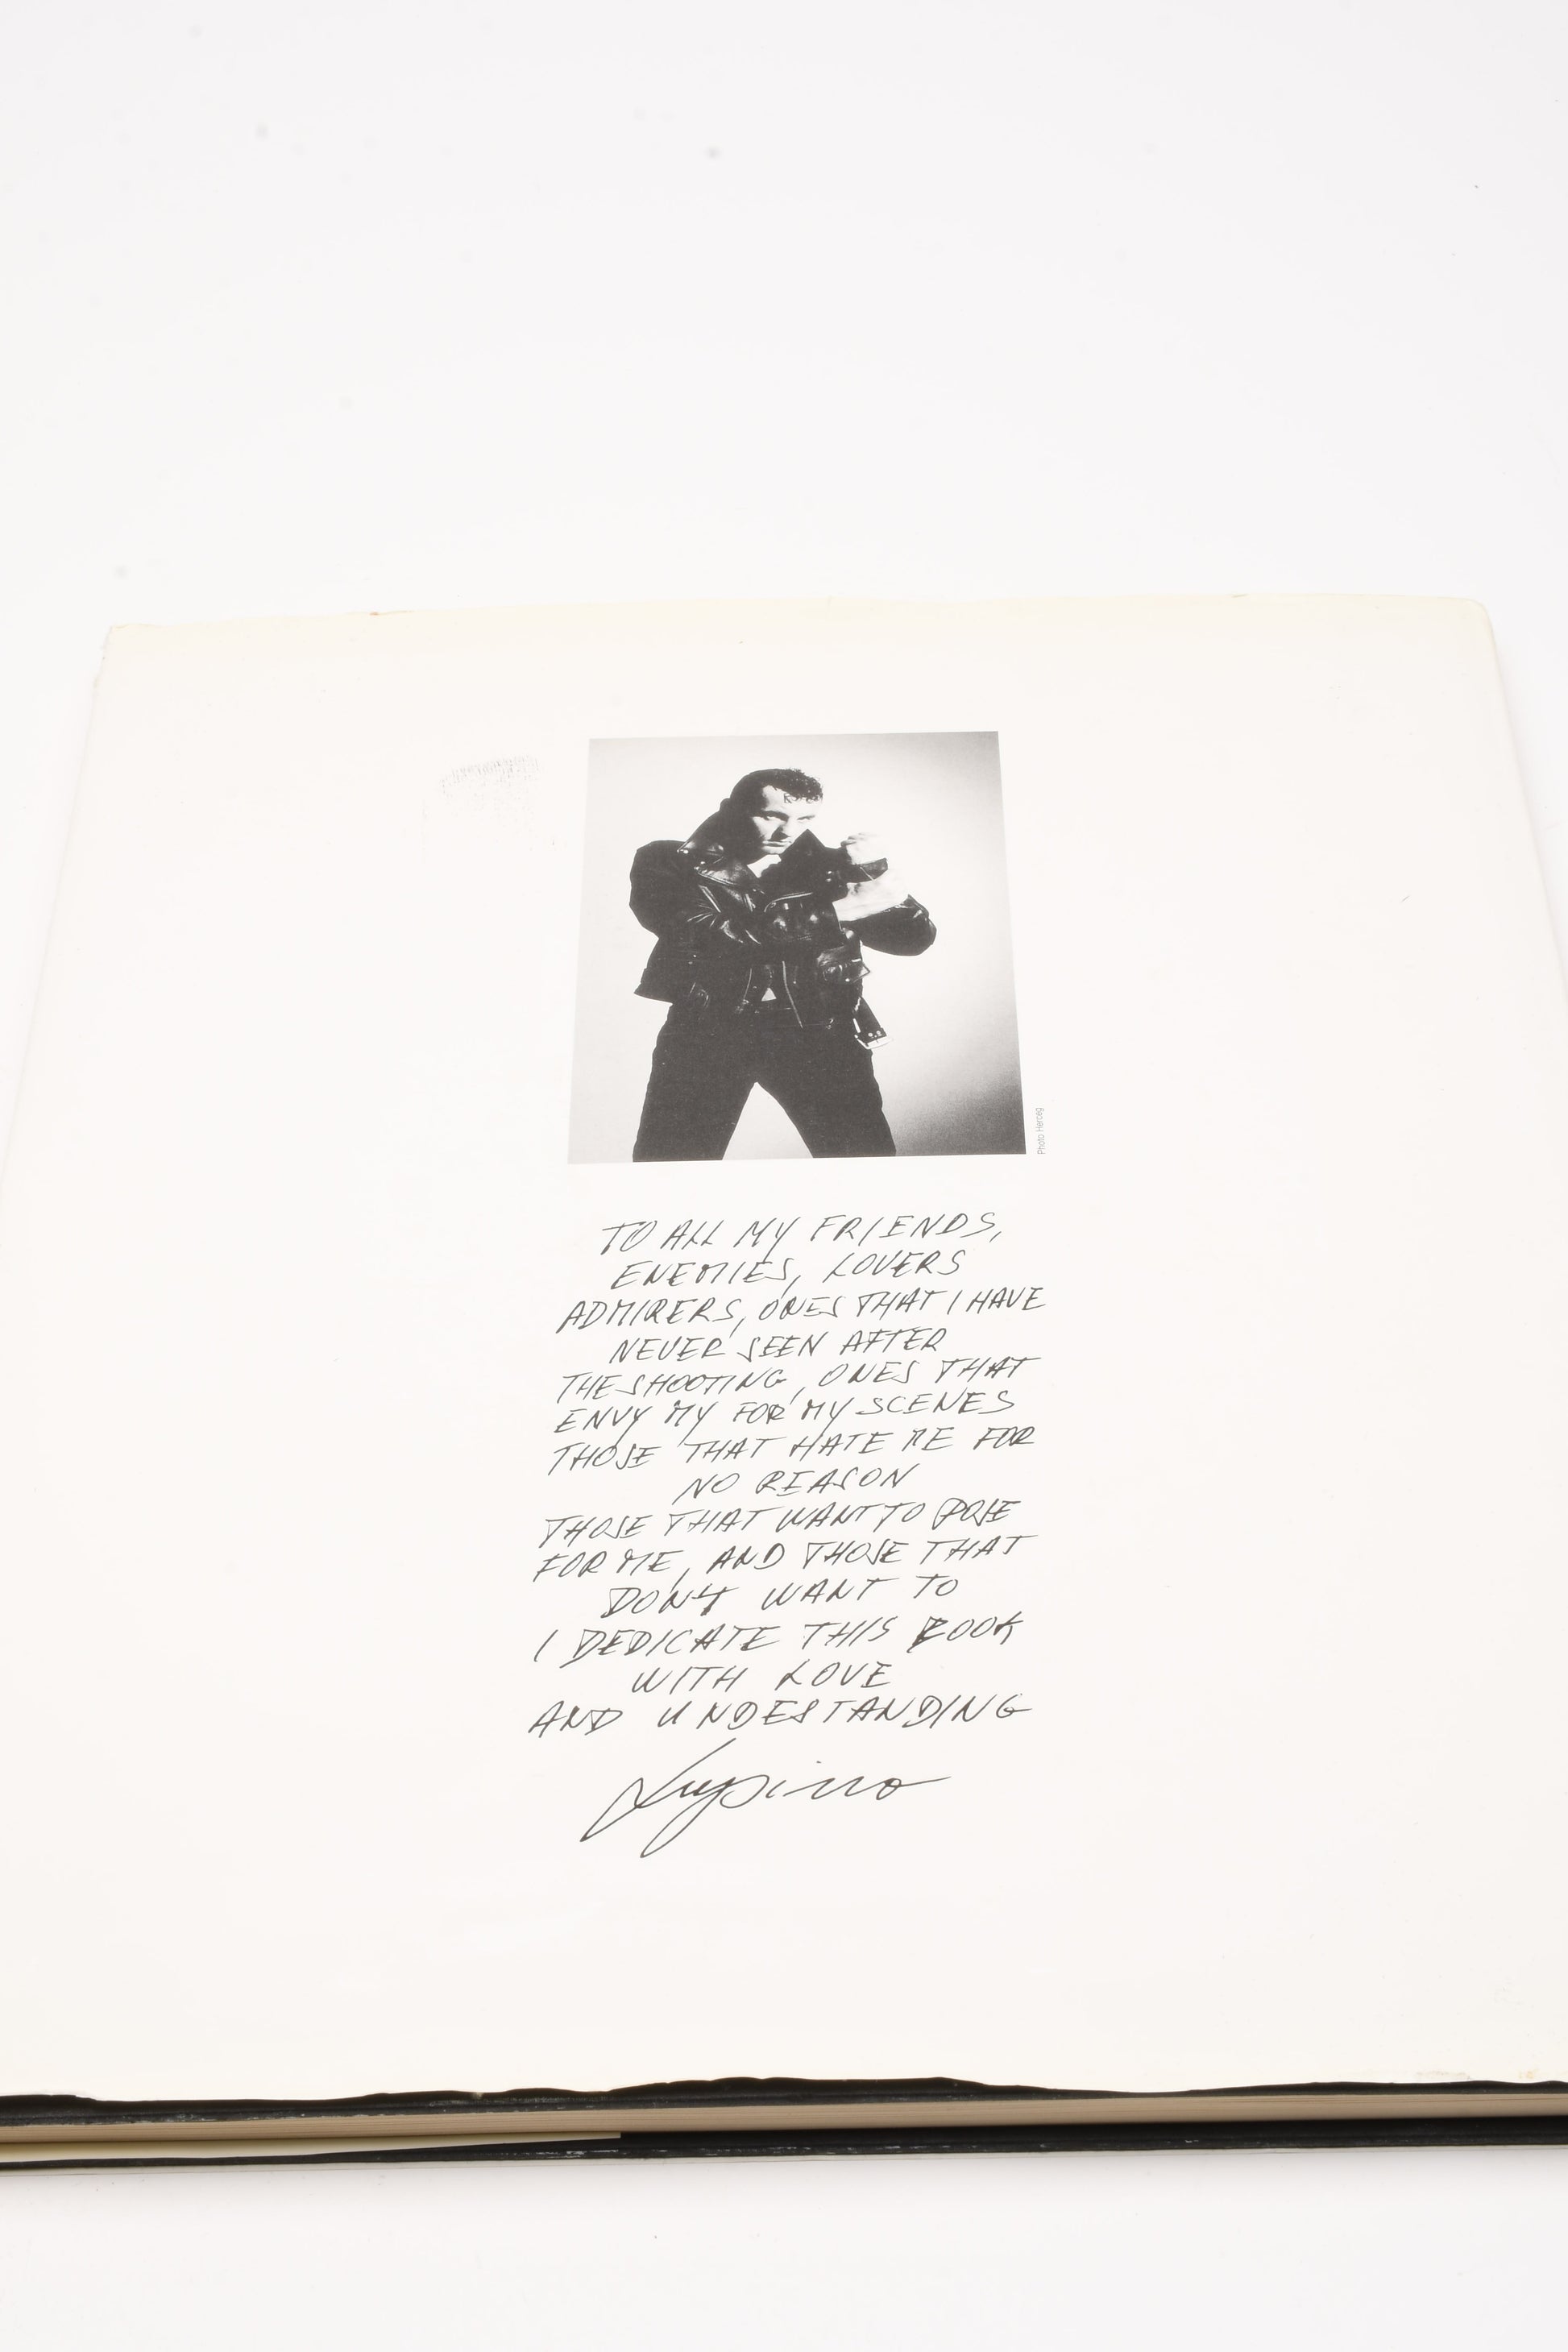 Photo Herceg
TO ALL MY FRIENDS,
ENEMIES, LOVERS
ADMIRERS, ONES THAT I HAVE
NEVER SEEN AFTER
THE SHOOTING, ONES THAT
ENVY MY FOR MY SCENES
THOSE THAT HATE ME FOR
NO REASON
THOSE THAT WANT TO POSE
FOR ME, AND THOSE THAT
DON'T WANT TO
I DEDICATE THIS BOOK
WITH LOVE
AND UNDESTANDING
Lupino